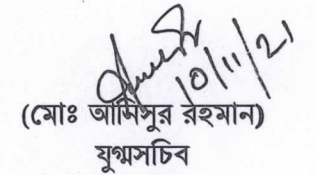 10/11/21
(মোঃ আনিসুর রহমান)
যুগ্মসচিব